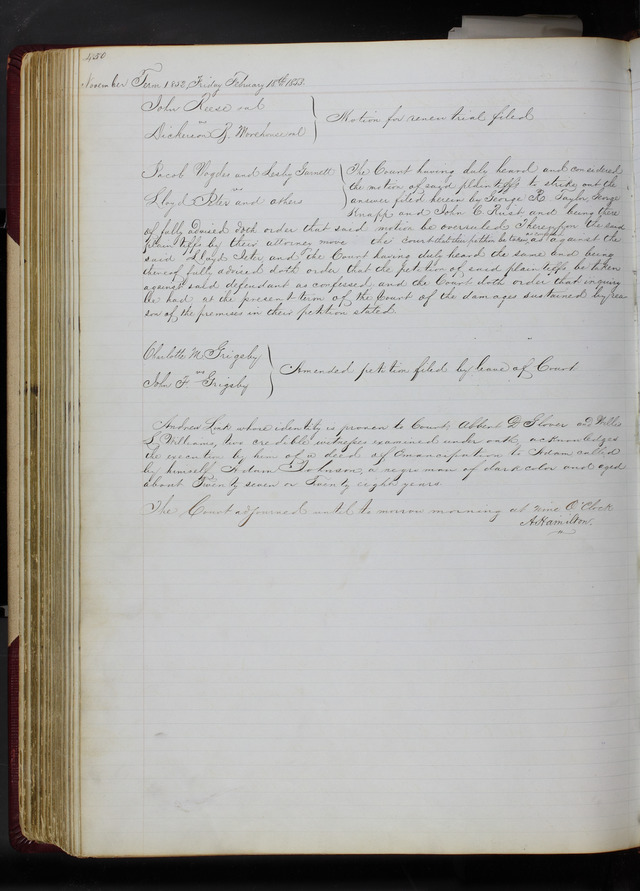 450
November Term 1852 Friday February 18th 1853.
John Reese et al
vs
Dickerson B. Morehouse et al
Motion for new trial filed
Jacob Wagder and Lesly Garnett
vs
Lloyd Peter and others
The Court having duly heard and considered
the motion of said plaintiffs to strike out the
answer filed herein by George R. Taylor, George
Knapp and John C. Rust and being there
of fully advised doth order that said motion be overruled. Thereupon the said
plaintiffs by their attorney move the court that their petition be taken as confessed as against the
said Lloyd Peter and the Court having duly heard the same and being
thereof fully advised doth order that the petition of said plaintiffs be taken
against said defendant as confessed and the Court doth order that inquiry
be had at the present term of the Court of the damages sustained by rea
son of the premises in their petition stated.
Charlotte M Grigsby
vs
John F Grigsby
Amended petition filed by leave of Court
Andrew Link whose identity is proven to Court by Albert G Glover and Willis
L Williams, two credible witnesses examined under oath, acknowledges
the execution by him of a deed of Emancipation to Adam called
by himself Adam Johnson, a negro man of dark color and aged
about Twenty seven or Twenty eight years.
The Court adjourned until to morrow morning at nine O'Clock
A Hamilton.